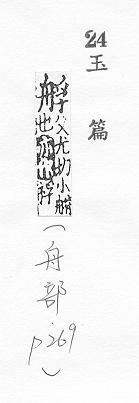 24
玉篇
艀父尤切小艒
(舟部
p269)